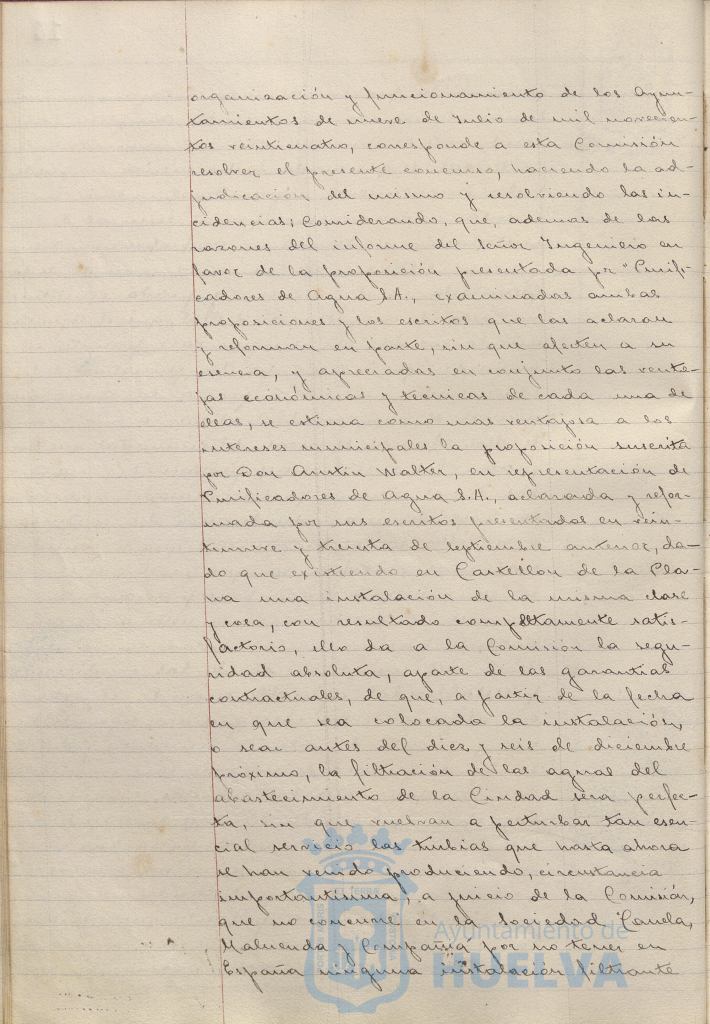 organización y funcionamiento de los Ayun-
tamientos de nueve de Julio de mil novecien-
tos veinticuatro, corresponde a esta Comisión
resolver el presente concurso, haciendo la ad-
judicación del mismo y resolviendo las in-
cidencias; Considerando, que, ademas de las
razones del informe del Señor Ingeniero en
favor de la proposición presentada pr "Purifi-
cadores de Agua S.A., examinadas ambas
proposiciones y los escritos que las aclaran
y reforman en parte, sin que afecten a su
esencia, y apreciadas en conjunto las venta-
jas económicas y técnicas de cada una de
ellas, se estima como mas ventajosa a los
intereses municipales la proposición suscrita
por Don Austin Walter, en representación de
Purificadores de Agua S.A., aclarada y refor-
mada por sus escritos presentados en vein-
tinueve y treinta de septiembre anterior, da-
do que existiendo en Castellon de la Pla-
na una instalación de la misma clase
y , con resultado completamente satis-
factorio, ello da a la Comisión la segu-
ridad absoluta, aparte de las garantias
contractuales, de que, a partir de la fecha
en que sea colocada la instalación,
o sea antes del diez y seis de diciembre
próximo, la filtración de las aguas del
abastecimiento de la Ciudad sera perfec-
ta, sin que vuelvan a perturbar tan esen-
cial servicio las turbias que hasta ahora
se han venido produciendo, circunstancia
importantísima, a juicio de la Comisión,
que no concurre en la Sociedad Canela,
Maluenda y Compañia, por no tener en
España ninguna instalación filtrante
Ayuntamiento de
HUELVA